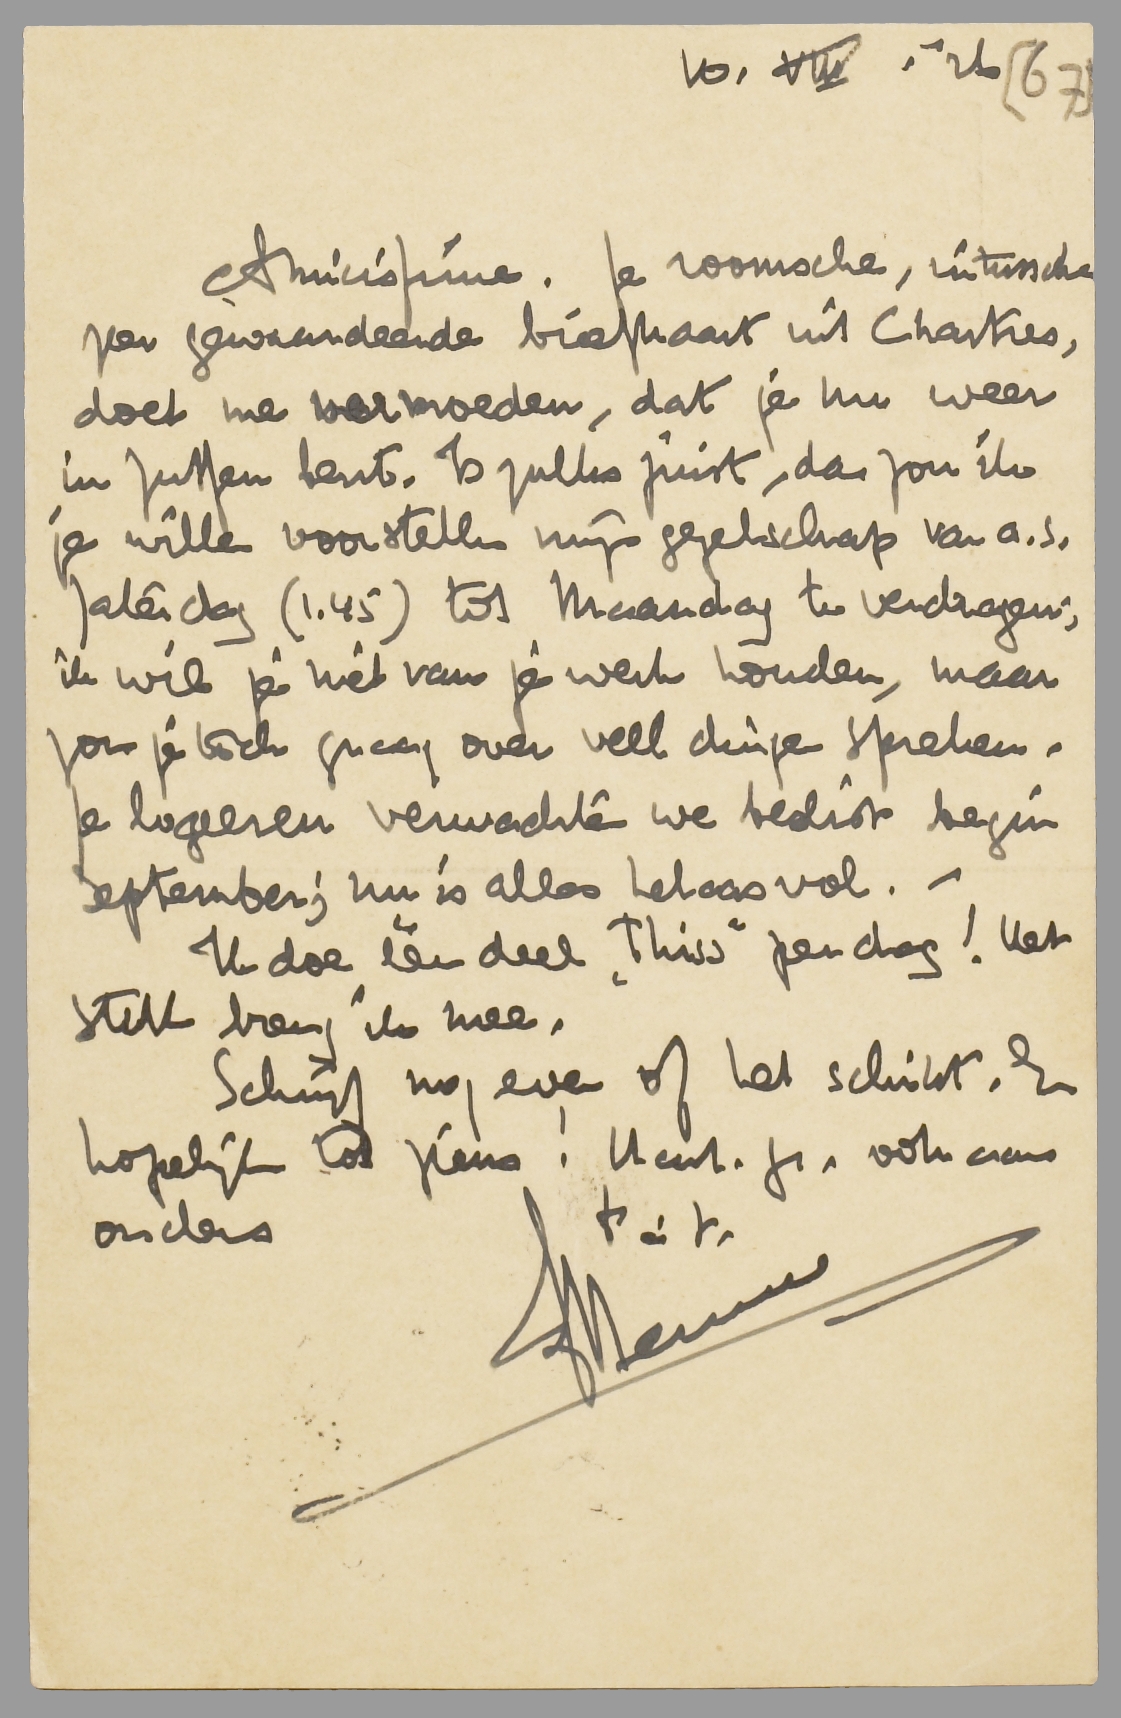 10. VIII. '26 [67]
Amicissime. Je roomsche, intussche
zeer gewaardeerde briefkaart uit Chartres,
doet me vermoeden, dat je nu weer
in Zutfen bent. Is zulks juist, dan zou ik
je willen voorstellen mijn gezelschap van a.s.
Zaterdag (1.45) tot Maandag te verdragen;
ik wil je niet van je werk houden, maar
zou je toch graag over veel dingen spreken.
Je logeeren verwachten we beslist begin
September; nu is alles helaas vol. —
Ik doe één deel „Thiss" per dag! Het
stelt breng ik mee.
Schrijf nog even of het schikt. En
hopelijk tot ziens! Hart. gr., ook aan
ouders
t. à t.